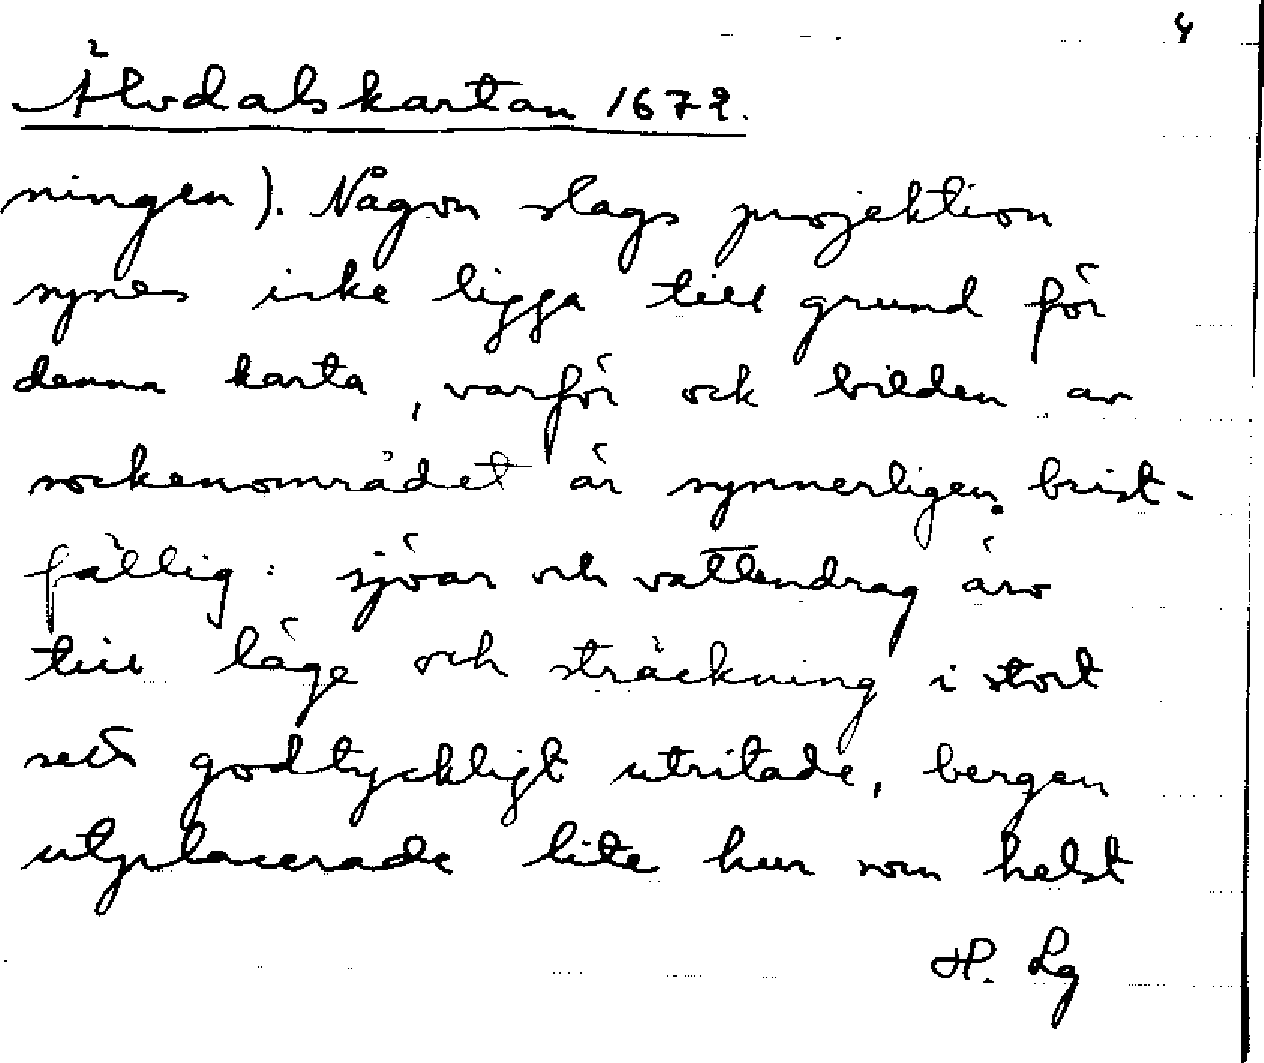 4
Älvdalskartan 1672.
ningen). Någon slags projektion
synes icke ligga till grund för
denna karta, varför ock bilden av
sockenområdet är synnerligen brist-
fällig: sjöar och vattendrag äro
till läge och sträckning i stort
sett godtyckligt utritade, bergen
utplacerade lite hur som helst
H. Lg